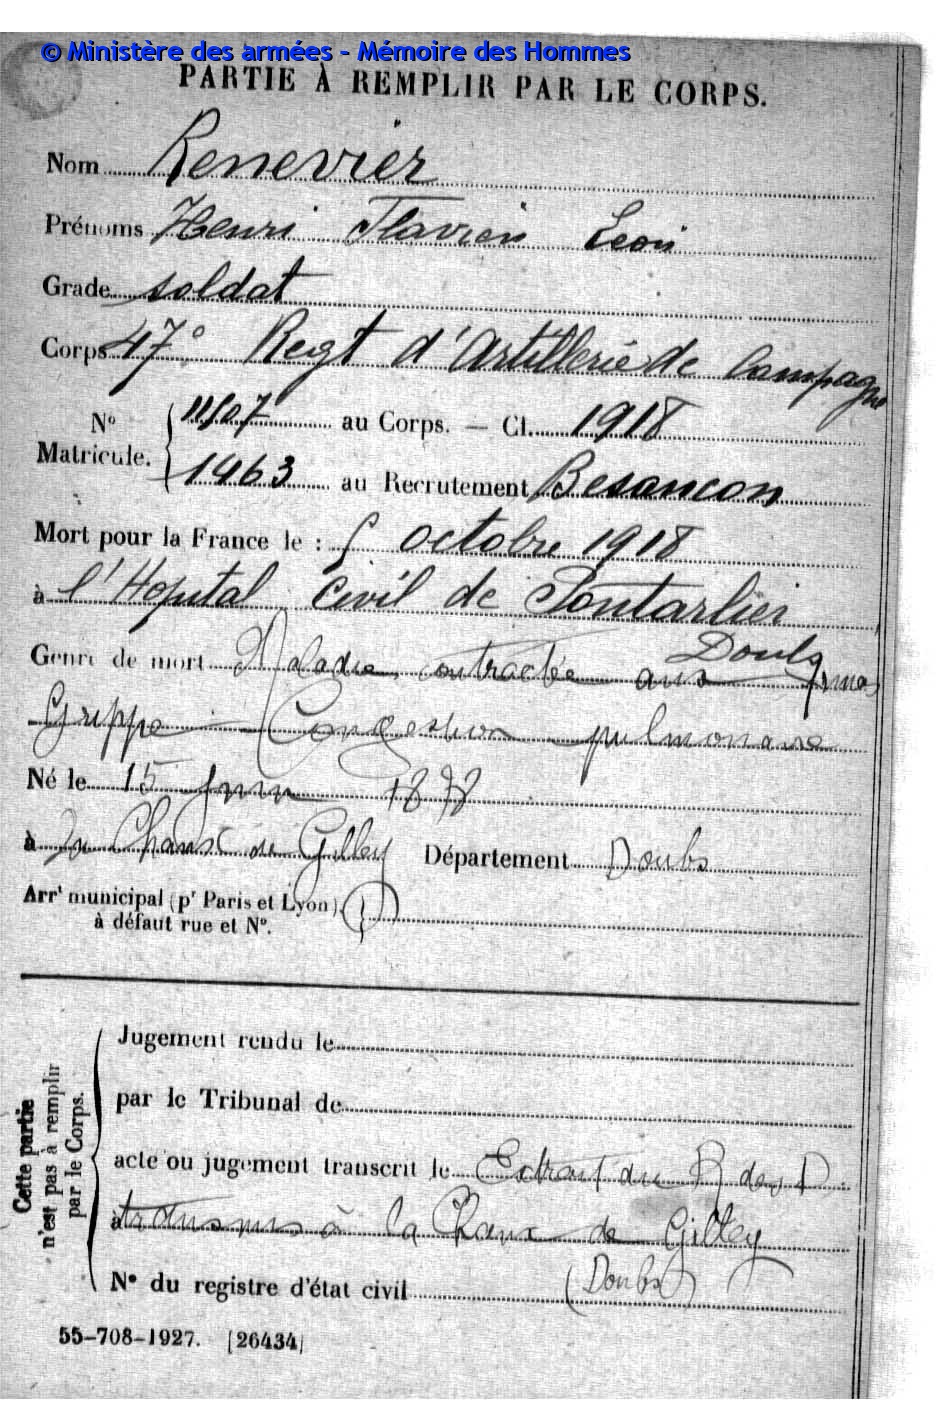 © Ministère des armées - Mémoire des Hommes
PARTIE À REMPLIR PAR LE CORPS.
Nom Renevier
Prénoms Henri Flavien Leon
Grade soldat
Corps 47° Regt d'Artillerie de Campagne
N° Matricule. 11507 au Corps. — Cl. 1918
1463 au Recrutement Besancon
Mort pour la France le : 5 octobre 1918
à l'Hopital Civil de Pontarlier
Doubs
Genre de mort Maladie contractée aux Armées
Grippe - Congestion pulmonaire
Né le 15 Juin
à La Chaux de Gilley Département Doubs
Arrt municipal (pr Paris et Lyon),
à défaut rue et N°.
Cette partie
n'est pas à remplir
par le Corps.
Jugement rendu le
par le Tribunal de
acte ou jugement transcrit le Extrait du R des D
à transmis à la Chaux de Gilley
(Doubs)
N° du registre d'état civil
55-708-1927. [26434]